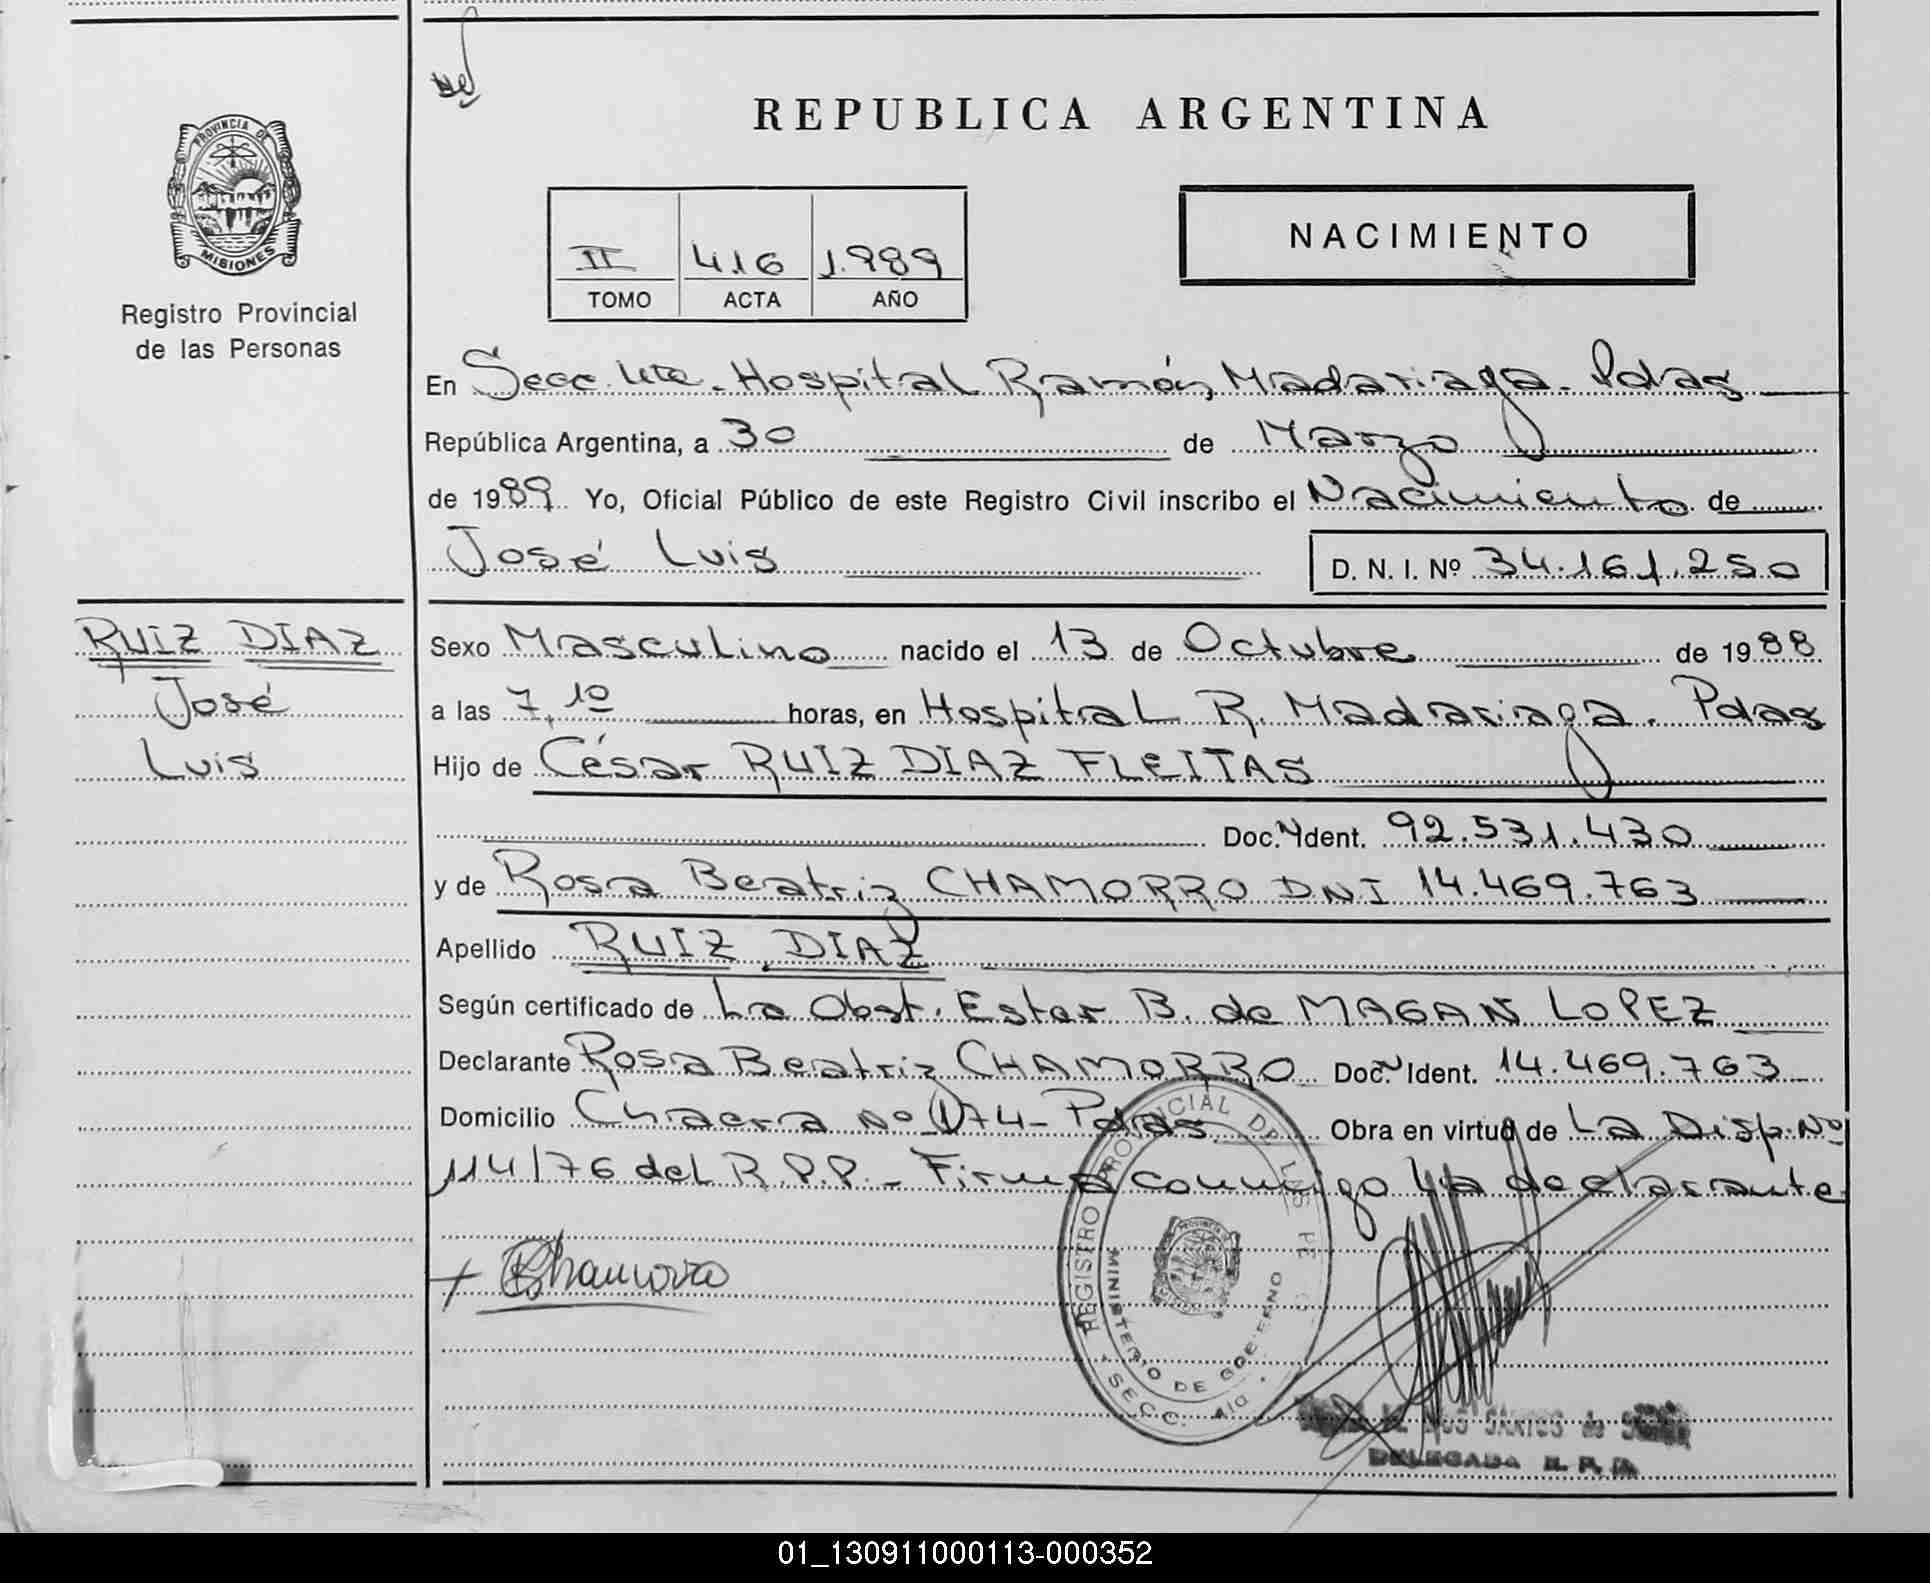 REPUBLICA ARGENTINA
PROVINCIA DE
MISIONES
Registro Provincial
de las Personas
NACIMIENTO
II 416 1.989
TOMO ACTA AÑO
En Secc. Hospital Ramón Madariaga. Pdas
República Argentina, a 30 de Marzo
de 1989. Yo, Oficial Público de este Registro Civil inscribo el Nacimiento de
José Luis D. N. I. Nº 34.161.250
RUIZ DIAZ
José
Luis
Sexo Masculino nacido el 13 de Octubre de 1988
a las 7,10 horas, en Hospital R. Madariaga. Pdas
Hijo de César RUIZ DIAZ FLEITAS
Doc. Ident. 92.531.430
y de Rosa Beatriz CHAMORRO DNI 14.469.763
Apellido RUIZ DIAZ
Según certificado de La Obst. Ester B. de MAGAN LOPEZ
Declarante Rosa Beatriz CHAMORRO Doc. Ident. 14.469.763
Domicilio Chacra Nº 174- Pdas Obra en virtud de La Disp. Nº
114/76 del R.P.P. - Firma conmigo la declarante
Chamorro
REGISTRO PROVINCIAL DE LAS PE
MINISTERIO DE GOBIERNO
SECC.
DOS SANTOS de
DELEGADA R. P. P.
01_130911000113-000352